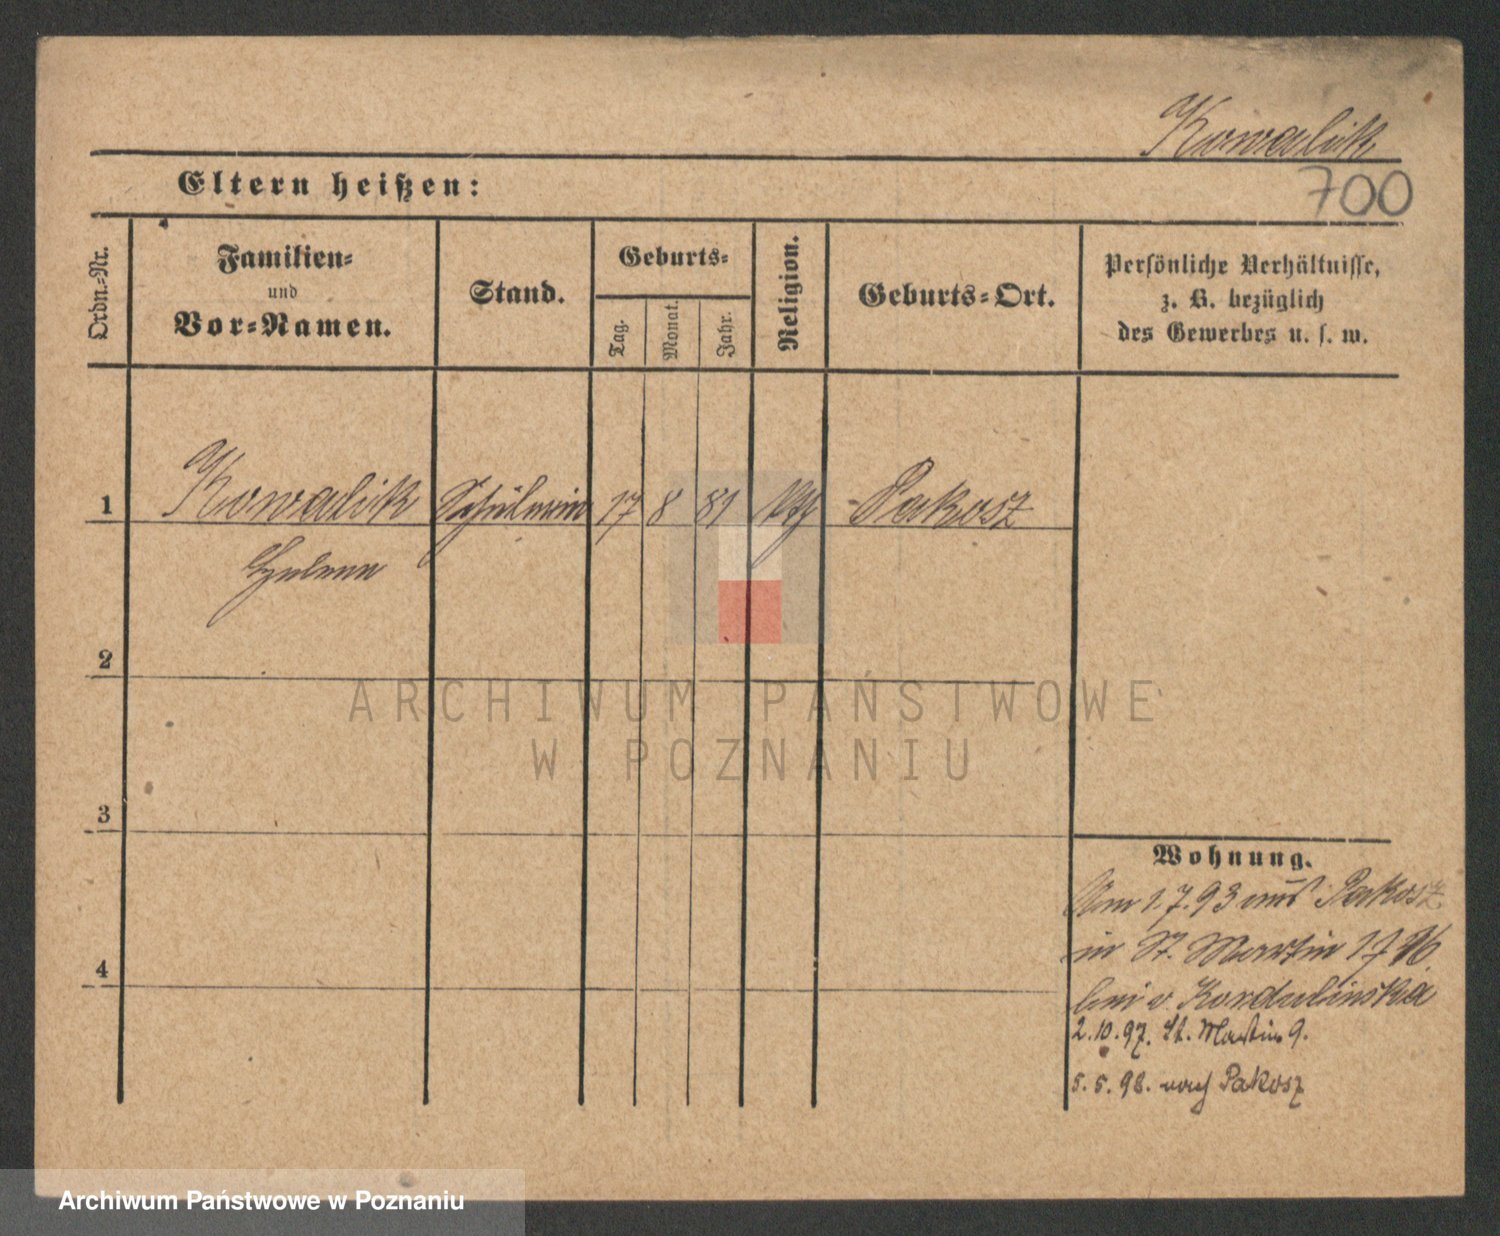 Kowalik
700
Eltern heißen:
Ordn.-Nr.
Familien-
und
Vor-Namen.
Stand.
Geburts-
Tag.
Monat.
Jahr.
Religion.
Geburts-Ort.
Persönliche Verhältnisse,
z. B. bezüglich
des Gewerbes u. s. w.
1 Kowalik Schülerin 17 8 81 Pakosz
2
3
4
Wohnung.
Am 1.7.93 aus Pakosz
in St. Martin 17
bei v. Kordulinska
2.10.97. St. Martin 9.
5.5.98. nach Pakosz
ARCHIWUM PAŃSTWOWE
W POZNANIU
Archiwum Państwowe w Poznaniu